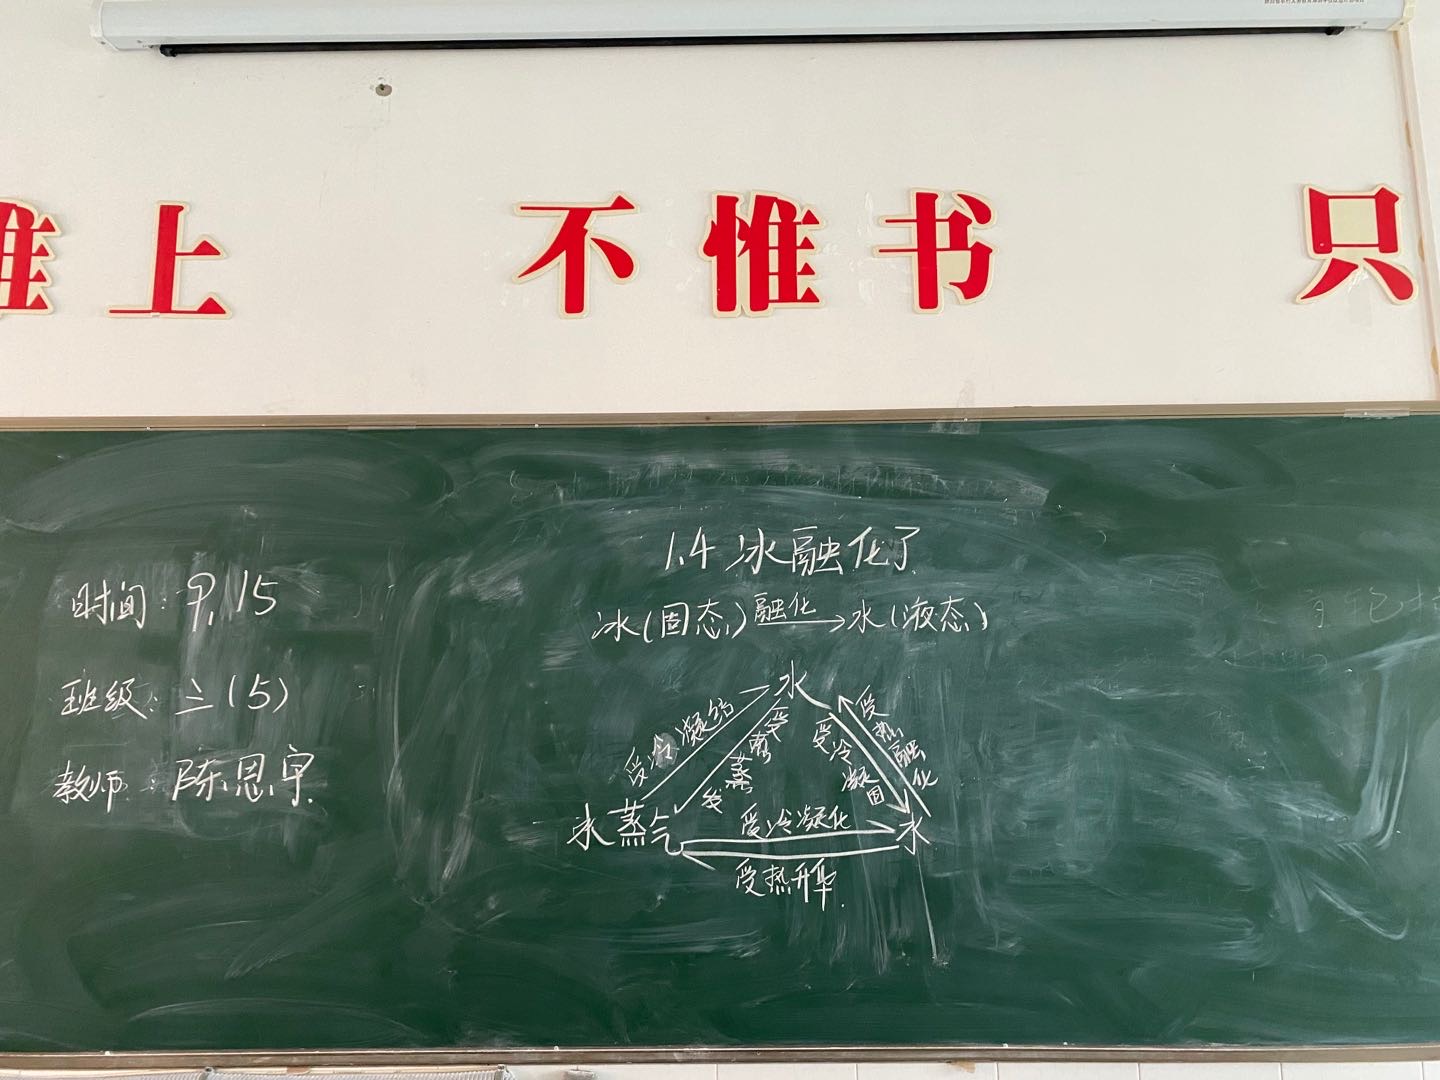 惟上 不惟书 只
1.4 冰融化了
时间：9.15
冰(固态) 融化 水(液态)
班级：三(5)
水
受冷凝结
受热蒸发
受冷凝固
受热融化
教师：陈恩宇
水蒸气 受冷凝化 水
受热升华